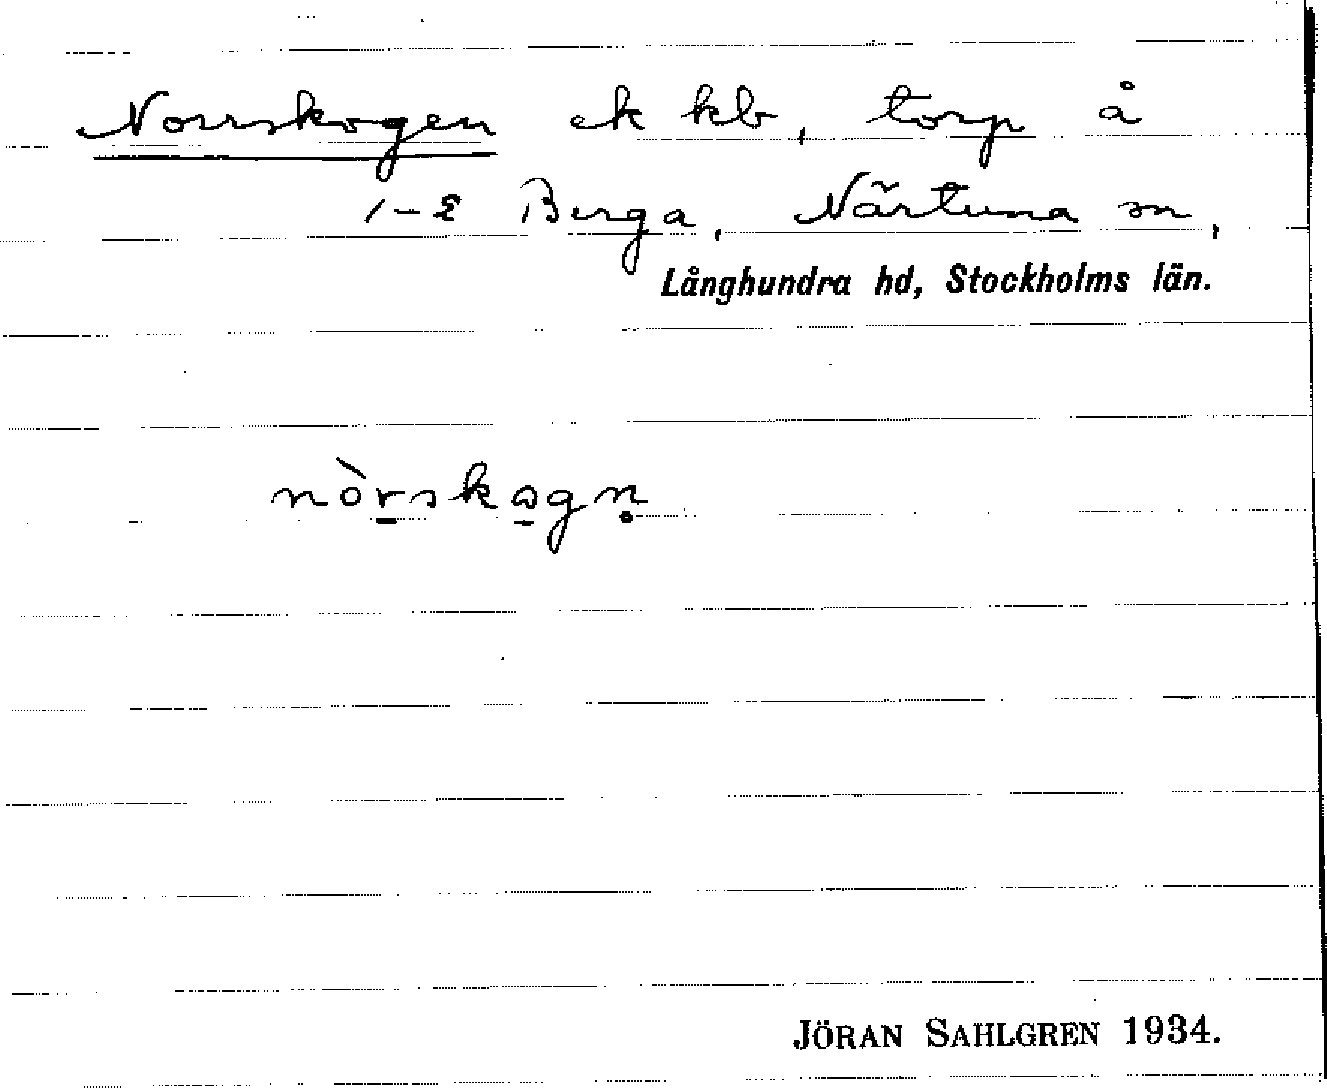 Norrskogen ek kb, torp å
1-2 Berga, Närtuna sn,
Långhundra hd, Stockholms län.
nòrskꞷgn̥
JÖRAN SAHLGREN 1934.